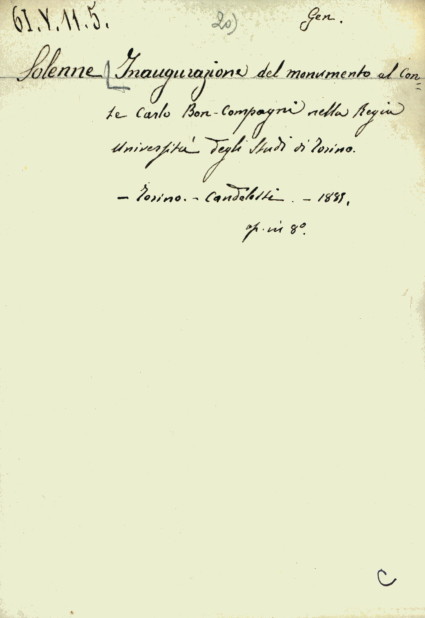 61.V.11.5. 20) Gen.
Solenne Inaugurazione del monumento al Con=
te Carlo Bon-Compagni nella Regia
Università degli Studi di Torino.
– Torino. – Candeletti. –
op. in 8º.
C